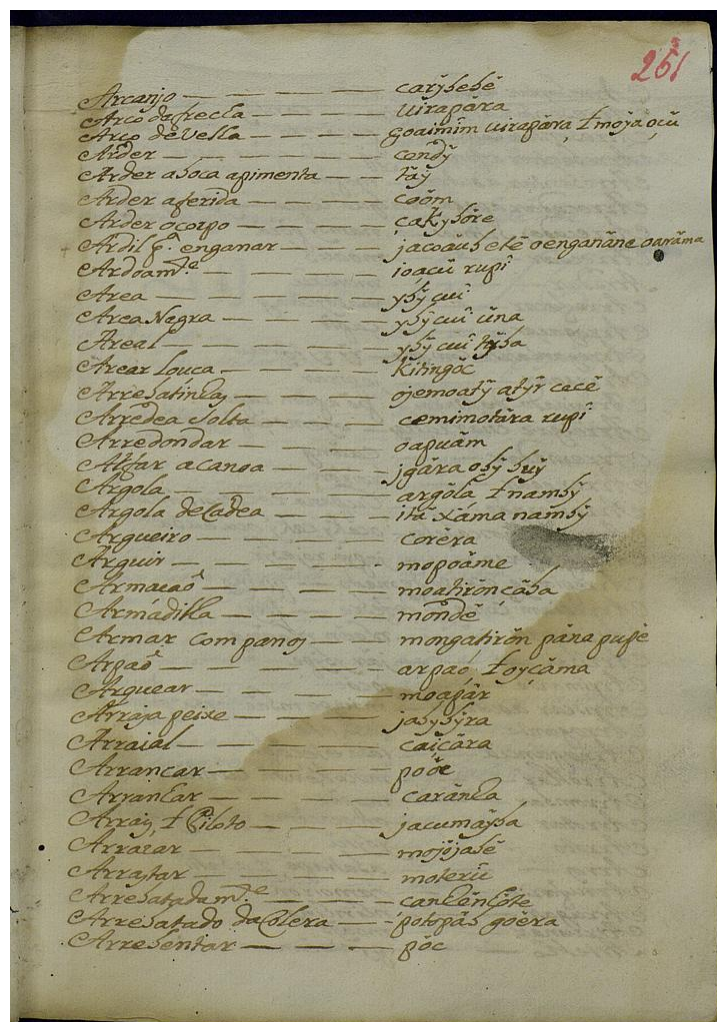 261
Arcanjo — — — — carỹbebê
Arco da frecha — — — — uirapâra
Arco de Vella — — — — goaimim uirapâra, ɫ moỹa oçû
Arder — — — — — cendỹ
Arder a boca a pimenta — — tãỹ
Arder a ferida — — — — coôm
Arder o corpo — — — — çakỹbôre
Ardil pª. enganar — — — — jacoáub etê oenganâne oarâma
Ardoam.te — — — — ioacû rupî
Area — — — — — ybỹ cuî
Area Negra — — — — ybỹ cuî ûna
Areal — — — — — ybỹ cuî tỹba
Arear Louca — — — — kitingôc
Arrebatinhas — — — — ojemoatỹ atỹr cecê
Arredea Solta — — — — cemimotâra rupî
Arredondar — — — oapuâm
Alijar a canoa — — — jgâra obỹ bûỹ
Argola — — — — argôla ɫ nambỹ
Argola de Cadea — — — itâ xâma nambỹ
Argueiro — — — — corêra
Arguir — — — — mopoâme
Armacaô — — — — moatirôn çâba
Armadilha — — — — mondê
Armar com panos — — — mongatirôn pâna pupê
Arpaô — — — — arpaô, ɫ oyçâma
Arquear — — — — moapâr
Arraja peixe — — — — jabybỹra
Arraial — — — — caiçâra
Arrancar — — — — poôe
Arranhar — — — — carânha
Arraiz, ɫ Piloto — — — — jacumaỹba
Arrazar — — — — mojôjabê
Arrastar — — — — moterîc
Arrebatadam.te — — — — canhênhôte
Arrebatado da Colera — — potopâb goêra
Arrebentar — — — — pôc